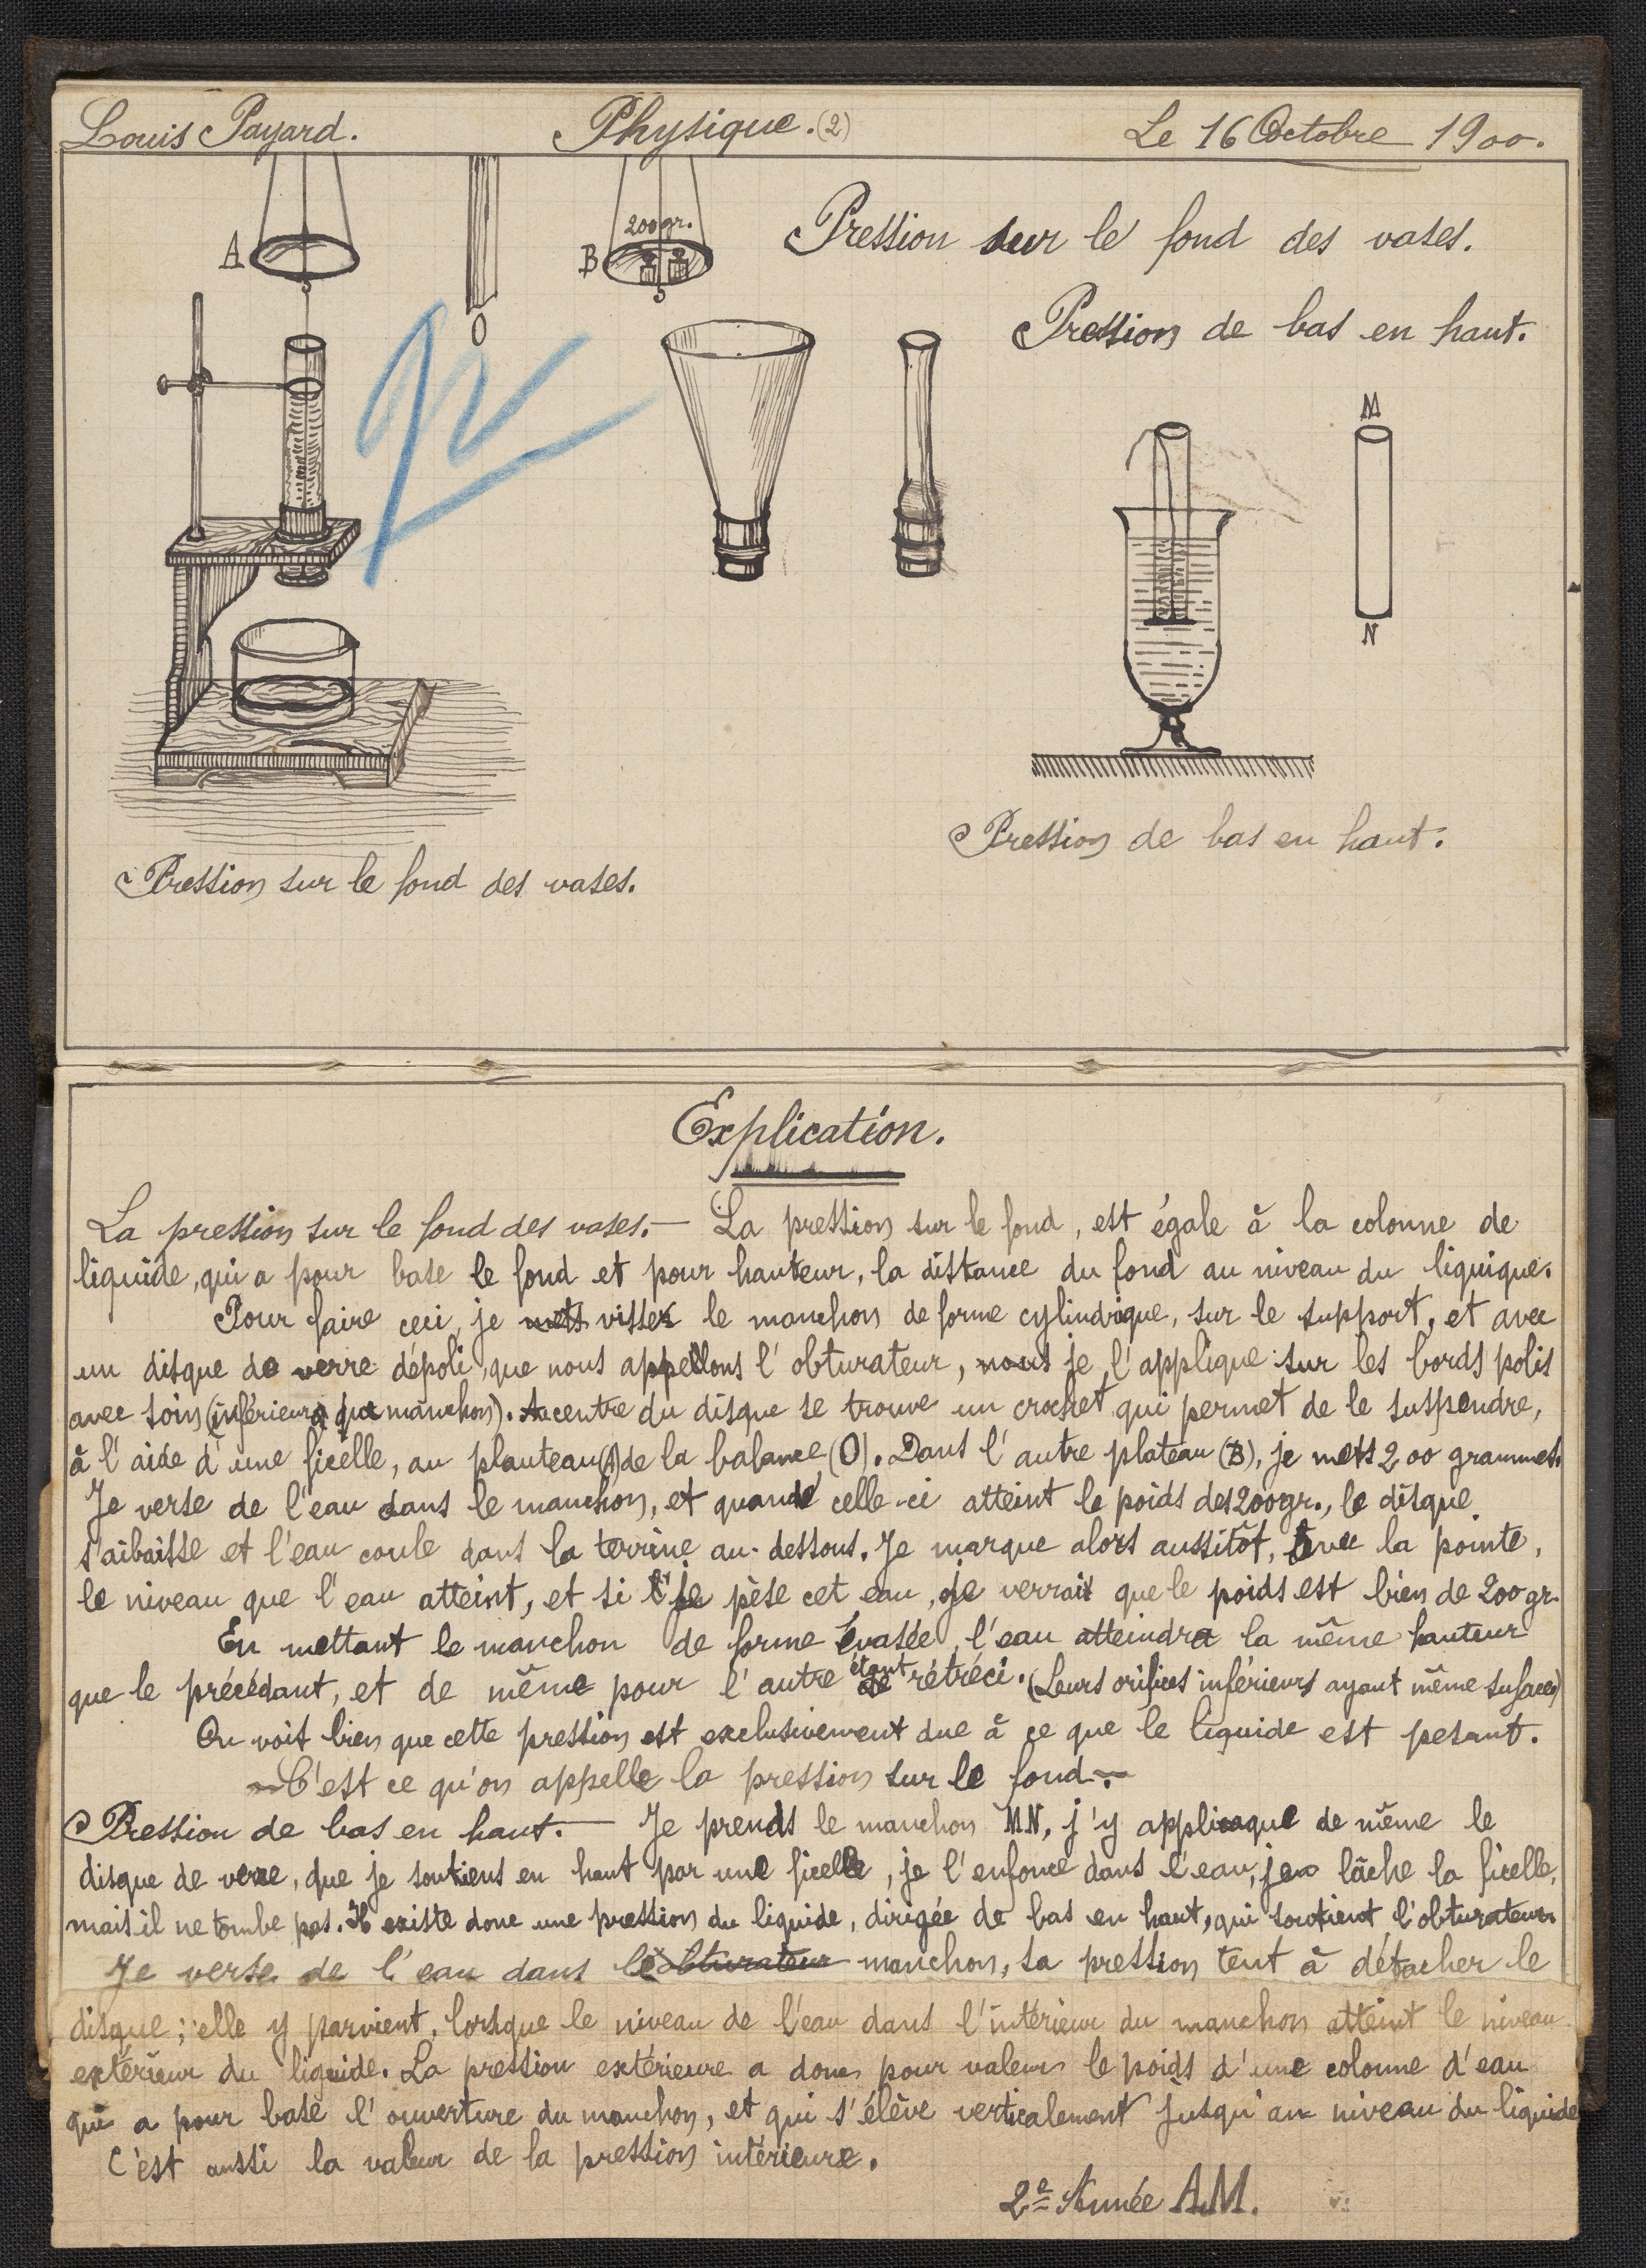 Louis Payard.
Physique. (2)
Le 16 Octobre 1900.
A
O
200gr.
B
Pression sur le fond des vases.
Pression de bas en haut.
M
N
Pression de bas en haut.
Pression sur le fond des vases.
Explication.
La pression sur le fond des vases. — La pression sur le fond, est égale à la colonne de
liquide, qui a pour base le fond et pour hauteur, la distance du fond au niveau du liquique.
Pour faire ceci, je mets visser le manchon de forme cylindrique, sur le support, et avec
un disque de verre dépoli, que nous appellons l'obturateur, nous je l'applique sur les bords polis
avec soin (inférieurs du manchon). Au centre du disque se trouve un crochet qui permet de le suspendre,
à l'aide d'une ficelle, au plauteau (A) de la balance (O). Dans l'autre plateau (B), je mets 200 grammes.
Je verse de l'eau dans le manchon, et quand celle-ci atteint le poids des 200gr., le disque
s'aibaisse et l'eau coule dans la terrine au-dessous. Je marque alors aussitôt, avec la pointe,
le niveau que l'eau atteint, et si je pèse cet eau, je verrait que le poids est bien de 200 gr.
En mettant le manchon de forme évasée, l'eau atteindra la même hauteur
que le précédant, et de même pour l'autre étant rétréci. (Leurs orifices inférieurs ayant même sufaces)
On voit bien que cette pression est exclusivement due à ce que le liquide est pesant.
C'est ce qu'on appelle la pression sur le fond.
Pression de bas en haut. — Je prends le manchon M.N, j'y applique de même le
disque de verre, que je soutiens en haut par une ficelle, je l'enfonce dans l'eau, je lâche la ficelle,
mais il ne tombe pas. Il existe donc une pression du liquide, dirigée de bas en haut, qui soutient l'obturateur
Je verse de l'eau dans le obturateur manchon, sa pression tent à détacher le
disque; elle y parvient, lorsque le niveau de l'eau dans l'intérieur du manchon atteint le niveau
extérieur du liquide. La pression extérieure a donc pour valeur le poids d'une colonne d'eau
qui a pour base l'ouverture du manchon, et qui s'élève verticalement jusqu'au niveau du liquide
C'est aussi la valeur de la pression intérieure.
2e Année A.M.